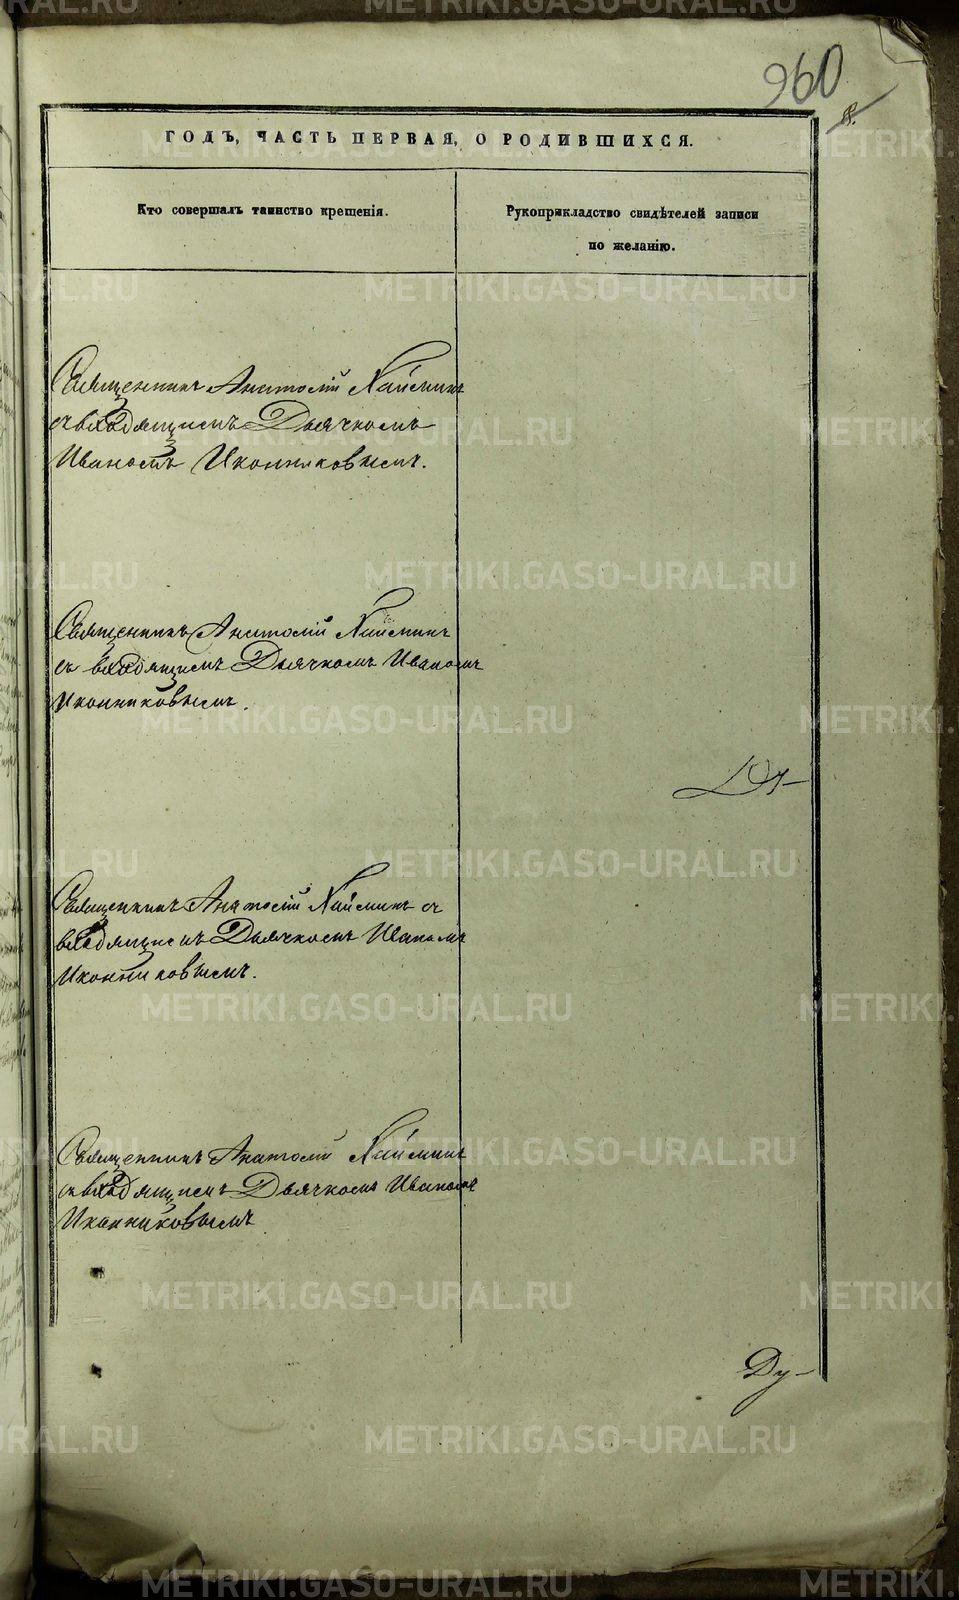 960
ГОДЪ, ЧАСТЬ ПЕРВАЯ, О РОДИВШИХСЯ.
Кто совершалъ таинство крещенія.
Рукоприкладство свидѣтелей записи
по желанію.
Священникъ Анатолій Наймикъ
съ входящимъ Дьячкомъ
Иваномъ Иконниковымъ.
Священникъ Анатолій Наймикъ
съ входящимъ Дьячкомъ Иваномъ
Иконниковымъ.
Священникъ Анатолій Наймикъ съ
входящимъ Дьячкомъ Иваномъ
Иконниковымъ.
Священникъ Анатолій Наймикъ
съ входящимъ Дьячкомъ Иваномъ
Иконниковымъ
Ду-
METRIKI.GASO-URAL.RU